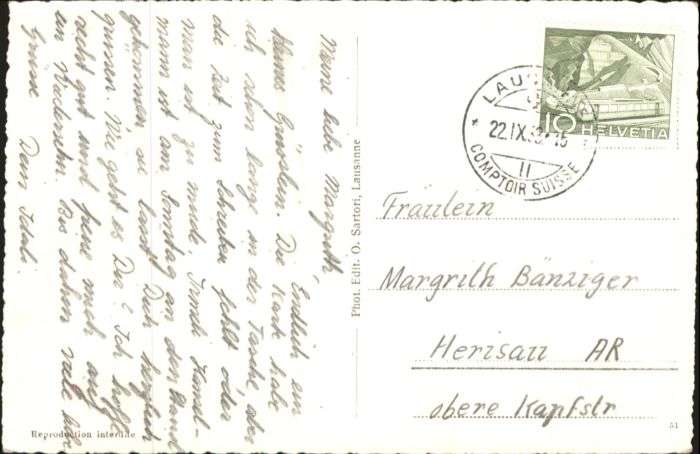 Meine liebe Margrith, Endlich ein
kleines Grüsslein. Die Karte habe
ich schon lange in der Tasche, aber
die Zeit zum Schreiben fehlt oder
man ist zu müde.
mann ist am Sonntag an den Stand
gekommen sie lässt Dich herzlich
grüssen. Wie geht es Dir? Ich hoffe
recht gut und freue mich auf
ein Wiedersehn. Bis dahin viele liebe
Grüsse Dein
Phot. Edit. O. Sartori, Lausanne
Reproduction interdite
LAUSANNE
22.IX.53
COMPTOIR SUISSE
II
10 HELVETIA
Fräulein
Margrith Bänziger
Herisau AR
obere Kapfstr
51